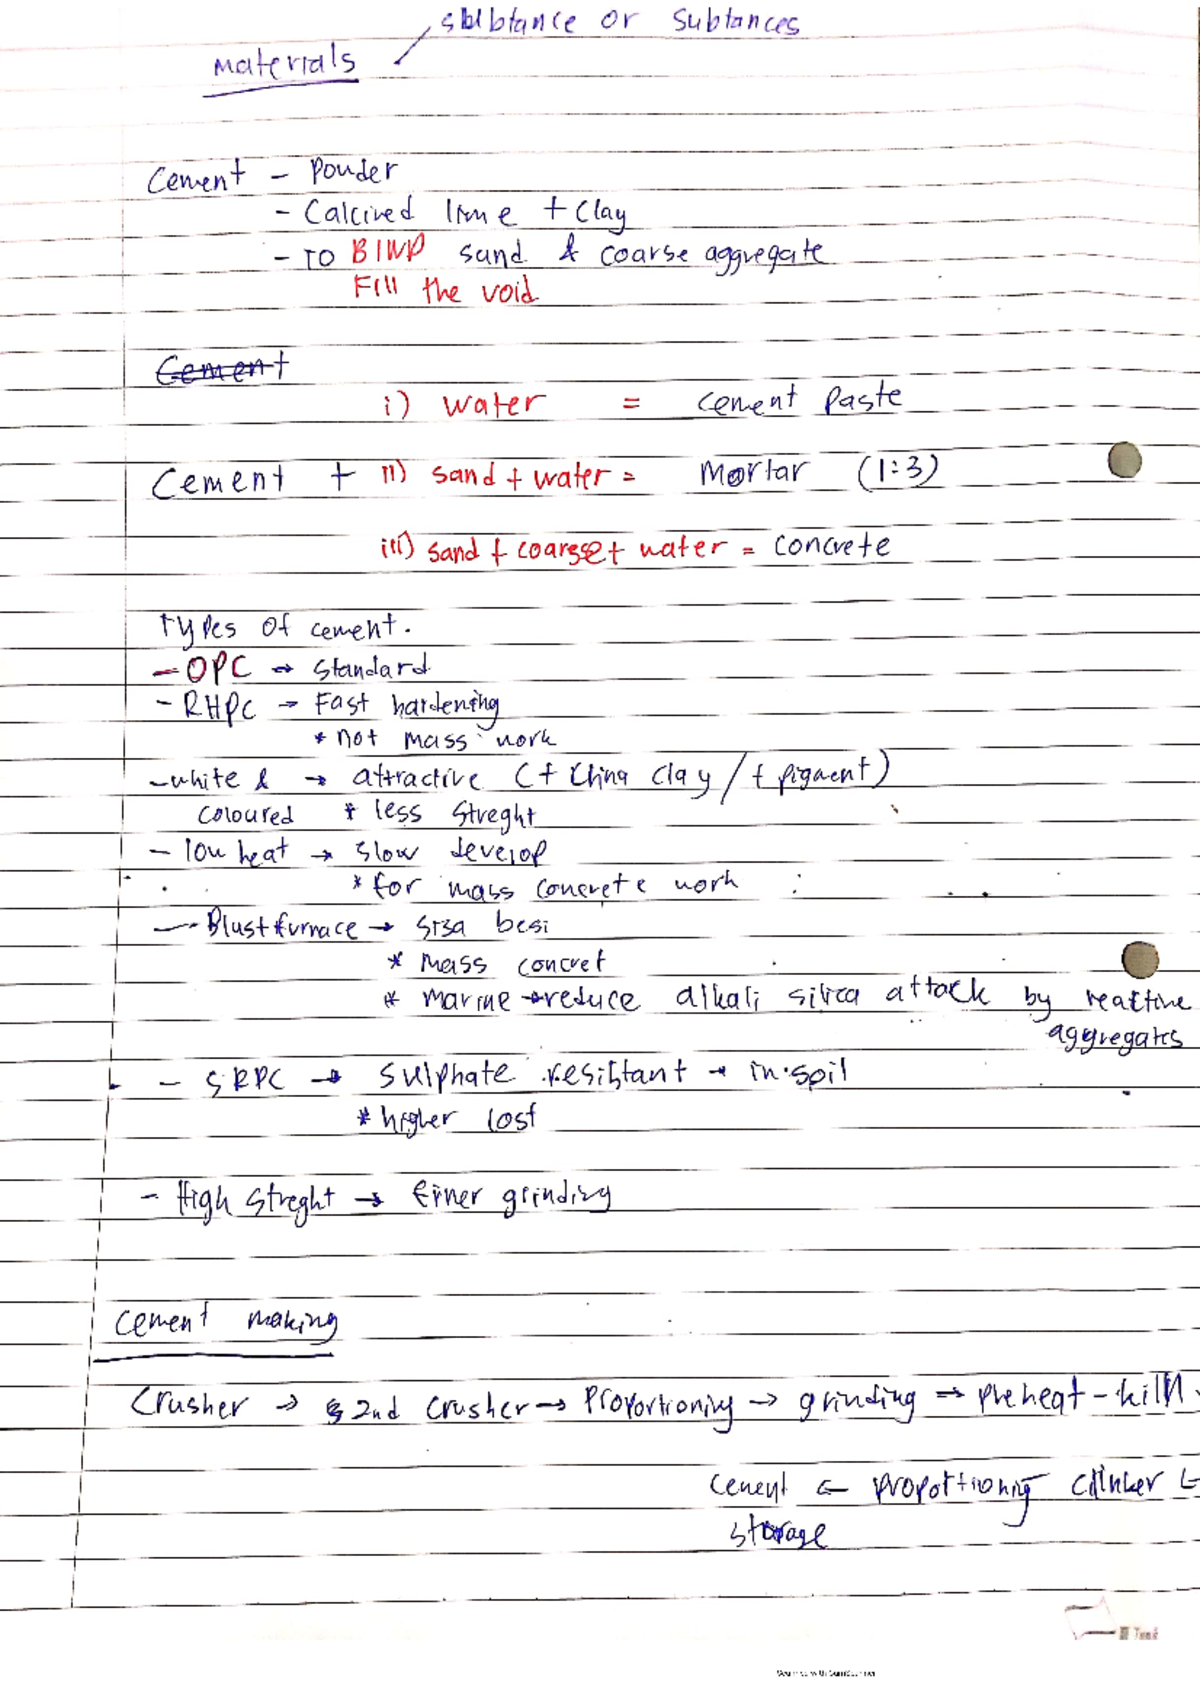 substance or Subtances
Materials
Cement - Powder
- Calcined lime + Clay
- TO BIND sand & coarse aggregate
Fill the void
Cement
i) water = cement Paste
Cement + ii) sand + water = Mortar (1:3)
iii) sand + coarse + water = concrete
Types of cement.
- OPC → Standard
- RHPC → Fast hardening
* not mass work
- white & → attractive (+ China clay / + pigment)
coloured * less Streght
- low heat → slow develop
* for mass concrete work
- Blustfurnace → sisa besi
* mass concret
* marine → reduce alkali silica attack by reactive
aggregates
- SRPC → sulphate resistant → in soil
* higher cost
- High Streght → finer grinding
cement making
Crusher → 2nd crusher → Proportioning → grinding → preheat - kiln
cement ← proportioning clinker ←
storage
Scanned with CamScanner